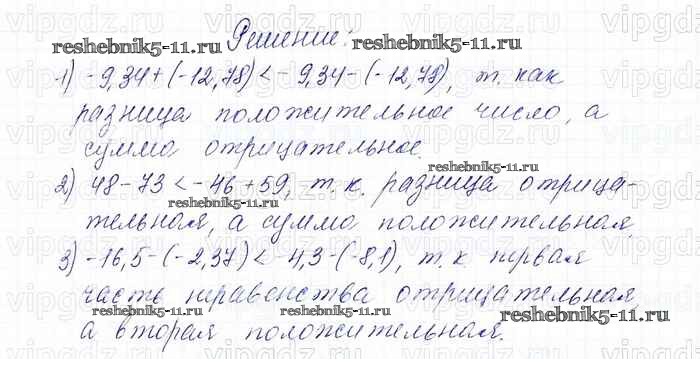 Решение:
1) -9,34+(-12,78)<-9,34-(-12,78), т. как
разница положительное число, а
сумма отрицательное.
2) 48-73<-46+59, т. к. разница отрица-
тельная, а сумма положительная
3) -16,5-(-2,37)<-4,3-(-8,1), т. к первая
часть неравенства отрицательная,
а вторая положительная.
reshebnik5-11.ru
reshebnik5-11.ru
reshebnik5-11.ru
reshebnik5-11.ru
reshebnik5-11.ru
reshebnik5-11.ru
reshebnik5-11.ru
vipgdz.ru